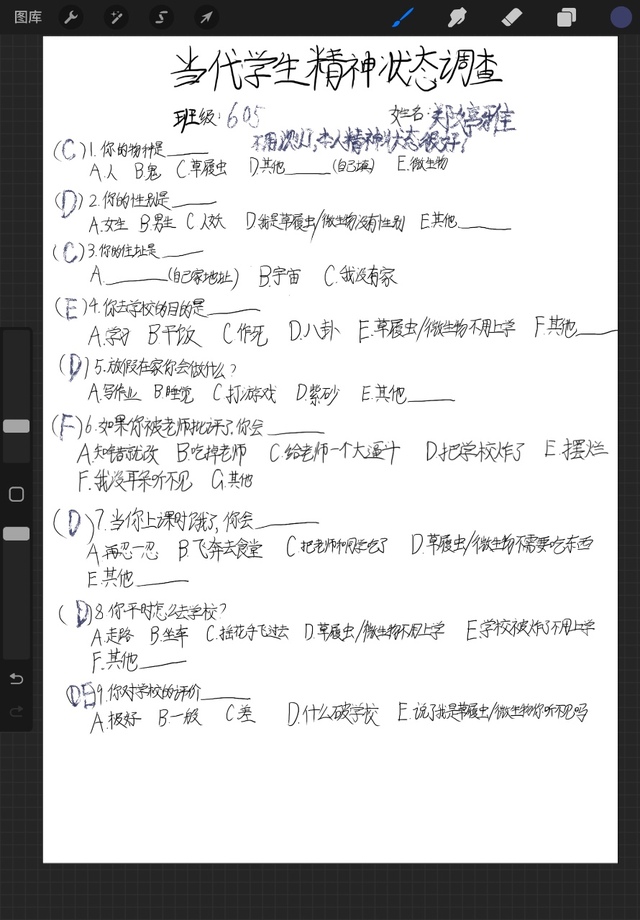 图库
当代学生精神状态调查
班级:605 姓名:郑婷雅
不用测了,本人精神状态很好!
(C)1.你的物种是____
A.人 B.鬼 C.草履虫 D.其他____(自己填) E.微生物
(D)2.你的性别是____
A.女生 B.男生 C.人妖 D.我是草履虫/微生物没有性别 E.其他____
(C)3.你的住址是____
A.____(自己家地址) B.宇宙 C.我没有家
(E)4.你去学校的目的是____
A.学习 B.干饭 C.作死 D.八卦 E.草履虫/微生物不用上学 F.其他____
(D)5.放假在家你会做什么?
A.写作业 B.睡觉 C.打游戏 D.紫砂 E.其他____
(F)6.如果你被老师批评了,你会____
A.知错就改 B.吃掉老师 C.给老师一个大逼斗 D.把学校炸了 E.摆烂
F.我没耳朵听不见 G.其他
(D)7.当你上课时饿了,你会____
A.再忍一忍 B.飞奔去食堂 C.把老师和同学吃了 D.草履虫/微生物不需要吃东西
E.其他____
(D)8.你平时怎么去学校?
A.走路 B.坐车 C.摇花手飞过去 D.草履虫/微生物不用上学 E.学校被炸了不用上学
F.其他____
(DE)9.你对学校的评价____
A.极好 B.一般 C.差 D.什么破学校 E.说了我是草履虫/微生物你听不见吗